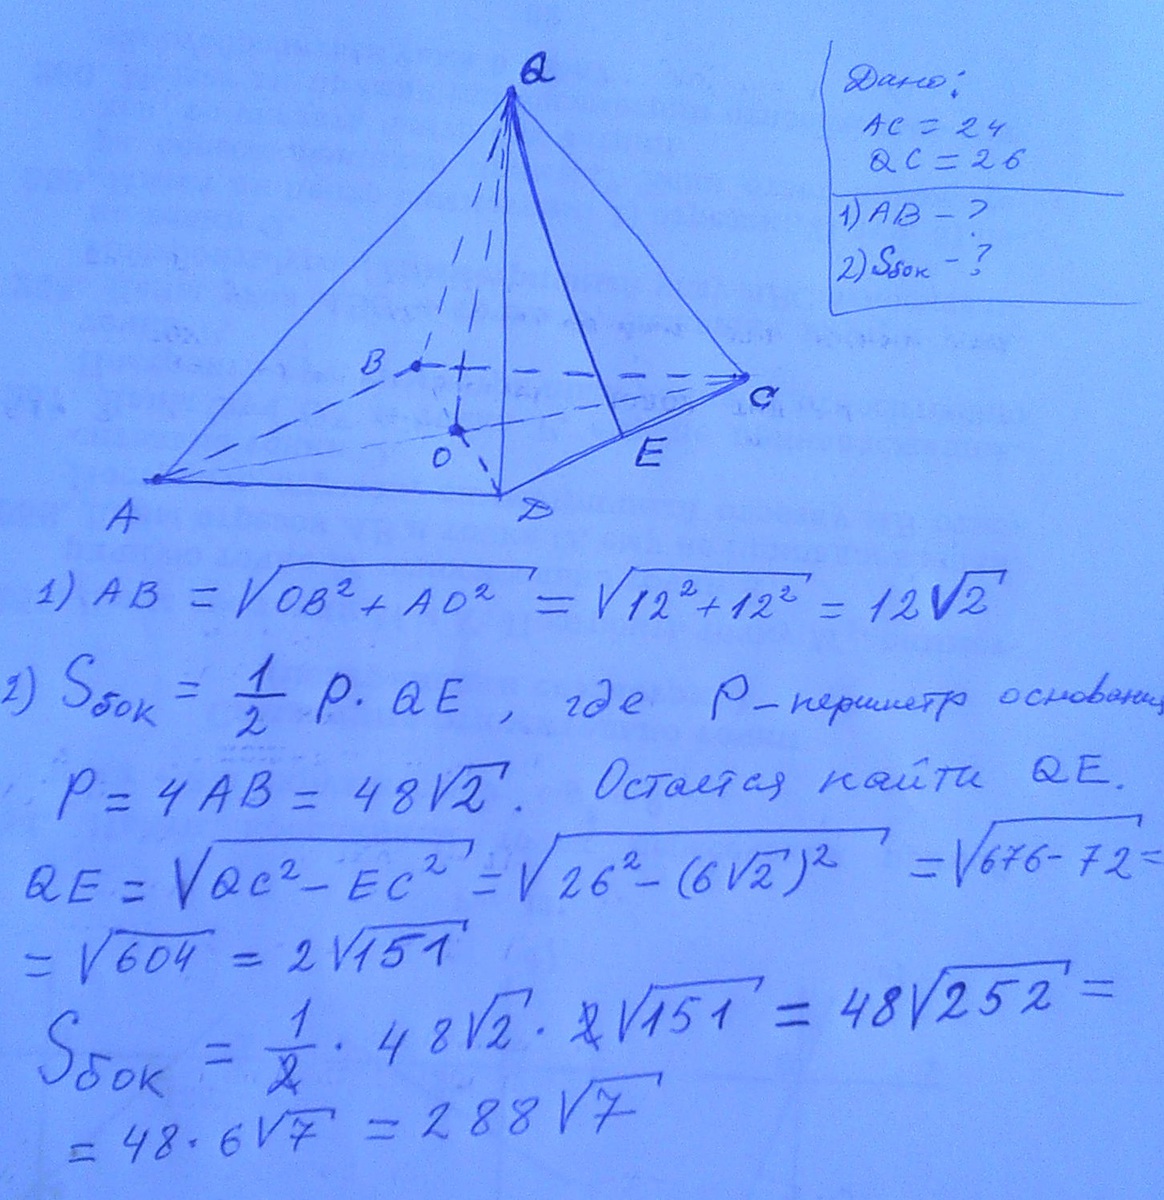 Q
Дано:
AC = 24
QC = 26
1) AB - ?
2) Sбок - ?
B
C
O
E
A
D
1) AB = √(OB² + AO²) = √(12² + 12²) = 12√2
2) Sбок = 1/2 P · QE, где P - периметр основания
P = 4AB = 48√2. Остаётся найти QE.
QE = √(QC² - EC²) = √(26² - (6√2)²) = √(676 - 72) =
= √604 = 2√151
Sбок = 1/2 · 48√2 · 2√151 = 48√252 =
= 48 · 6√7 = 288√7